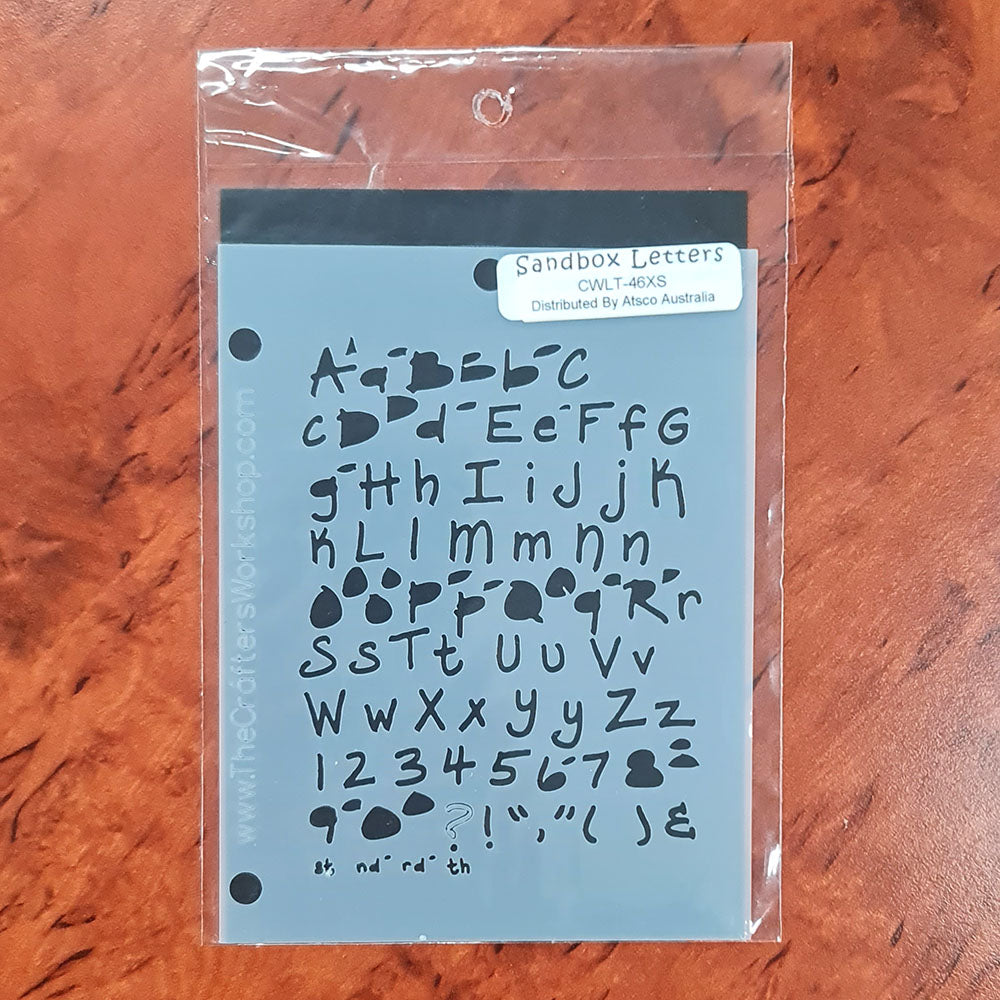 Sandbox Letters
CWLT-46XS
Distributed By Atsco Australia
www.TheCraftersWorkshop.com
A a B b C
c D d E e F f G
g H h I i J j K
k L l M m N n
O o P p Q q R r
S s T t U u V v
W w X x Y y Z z
1 2 3 4 5 6 7 8
9 0 ? ! " , " ( ) &
st, nd rd th